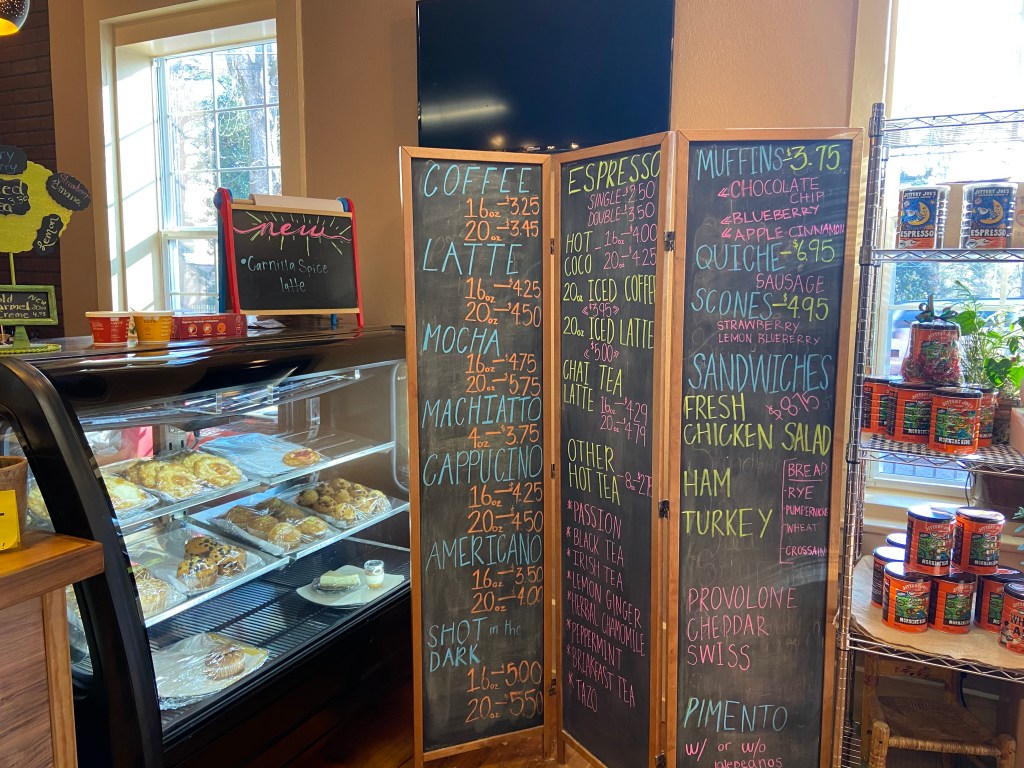 new
•Carnilla Spice
latte
Strawberry
Banana
Lemon
New
COFFEE
16oz-$3.25
20oz-$3.45
LATTE
16oz-$4.25
20oz-$4.50
MOCHA
16oz-$4.75
20oz-$5.75
MACHIATTO
4oz-$3.75
CAPPUCINO
16oz-$4.25
20oz-$4.50
AMERICANO
16oz-3.50
20oz-4.00
SHOT in the
DARK
16oz-5.00
20oz-5.50
ESPRESSO
SINGLE-$2.50
DOUBLE-$3.50
HOT
COCO
16oz-$4.00
20oz-4.25
20oz ICED COFFEE
$3.95
20oz ICED LATTE
$5.00
CHAI TEA
LATTE
16oz-$4.29
20oz-$4.79
OTHER
HOT TEA
*PASSION
*BLACK TEA
*IRISH TEA
*LEMON GINGER
*HERBAL CHAMOMILE
*PEPPERMINT
*BREAKFAST TEA
*TAZO
MUFFINS-$3.75
CHOCOLATE
CHIP
BLUEBERRY
APPLE CINNAMON
QUICHE-$6.95
SAUSAGE
SCONES-$4.95
STRAWBERRY
LEMON BLUEBERRY
SANDWICHES
$8.75
FRESH
CHICKEN SALAD
HAM
TURKEY
BREAD
-RYE
PUMPERNICKLE
WHEAT
CROSSAIN
PROVOLONE
CHEDDAR
SWISS
PIMENTO
w/ or w/o
jalepeanos
JITTERY JOE'S
ESPRESSO
JITTERY JOE'S
ESPRESSO
MORNING RIDE
MORNING RIDE
MORNING RIDE
MORNING RIDE